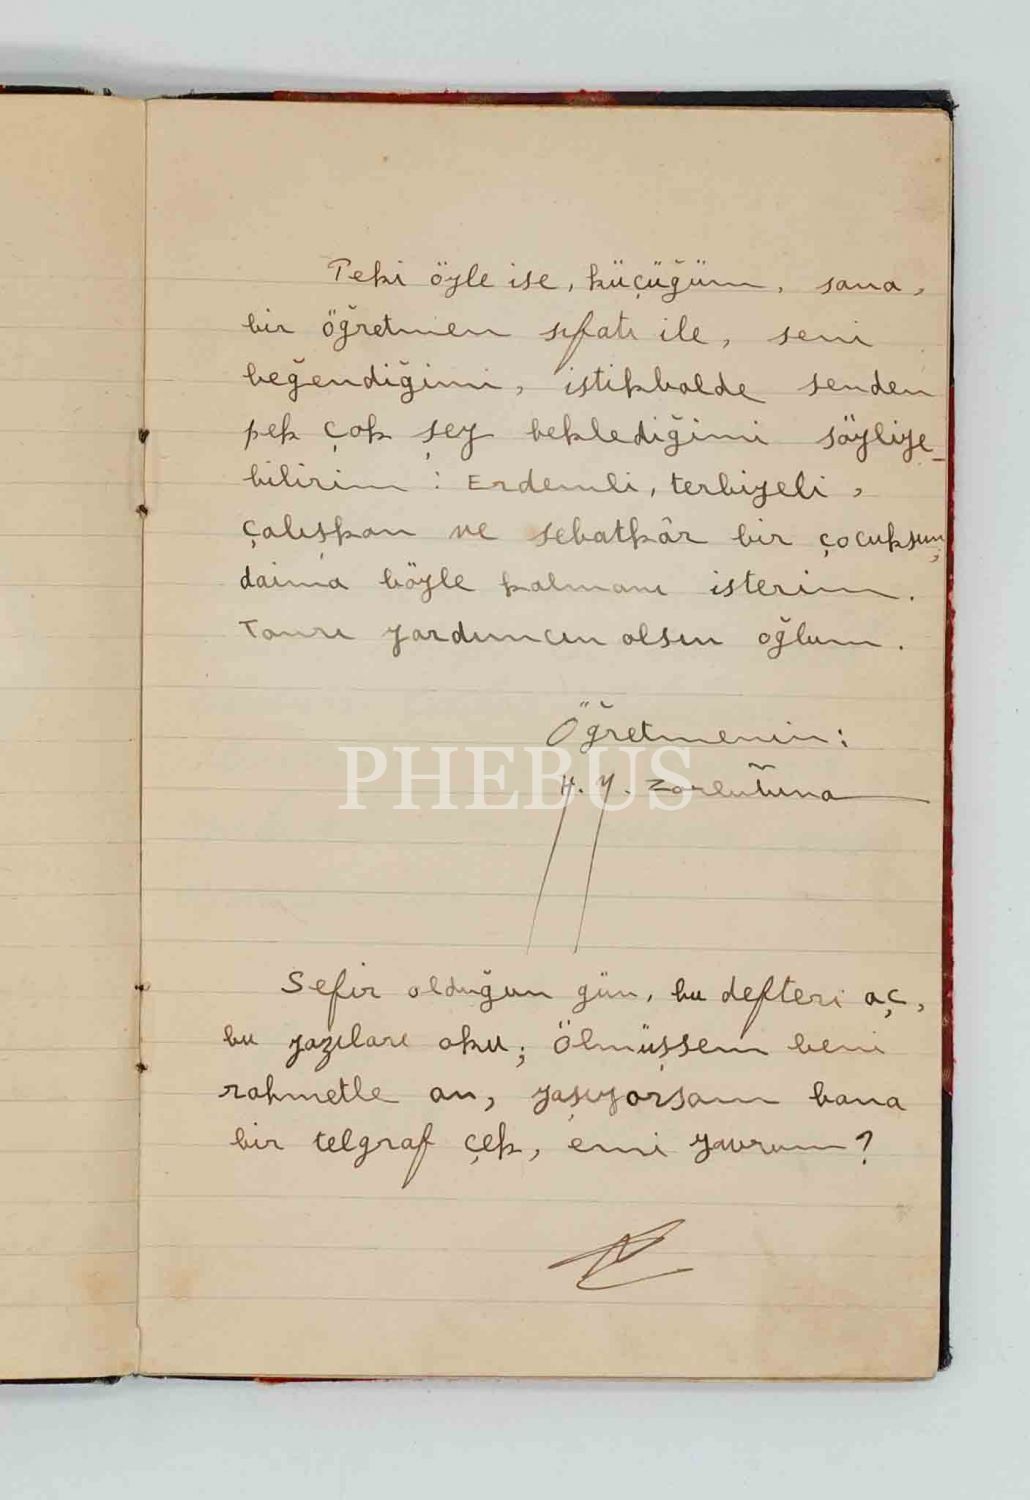 Peki öyle ise, küçüğüm, sana,
bir öğretmen sıfatı ile, seni
beğendiğimi, istikbalde senden
pek çok şey beklediğimi söyliye-
bilirim : Erdemli, terbiyeli,
çalışkan ve sebatkâr bir çocuksun;
daima böyle kalmanı isterim.
Tanrı yardımcın olsun oğlum.
Öğretmenin:
PHEBUS
H. Y. Zorlutuna
Sefir olduğun gün, bu defteri aç,
bu yazıları oku; Ölmüşsem beni
rahmetle an, yaşıyorsam bana
bir telgraf çek, emi yavrum?